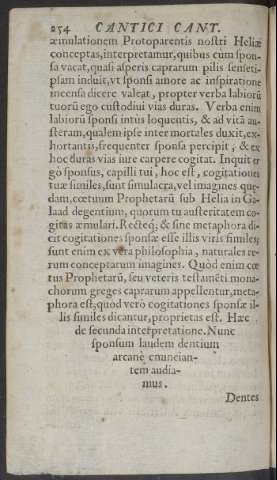 254 CANTICI CANT.
æmulationem Protoparentis nostri Heliæ
conceptas, interpretamur, quibus cùm spon-
sa vacat, quasi asperis caprarum pilis senseti-
psam induit, vt sponsi amore ac inspiratione
incensa dicere valeat, propter verba labiorũ
tuorũ ego custodiui vias duras. Verba enim
labiorũ sponsi intùs loquentis, & ad vitã au-
steram, qualem ipse inter mortales duxit, ex-
hortantis, frequenter sponsa percipit, & ex
hoc duras vias iure carpere cogitat. Inquit er
gò sponsus, capilli tui, hoc est, cogitationes
tuæ similes, sunt simulacra, vel imagines quę-
dam, cœtuum Prophetarũ sub Helia in Ga-
laad degentium, quorum tu austeritatem co-
gitas æmulari. Recteq; & sine metaphora di-
cit cogitationes sponsæ esse illis viris similes;
sunt enim ex vera philosophia, naturales re-
rum conceptarum imagines. Quòd enim cœ
tus Prophetarũ, seu veteris testamẽti mona-
chorum greges caprarum appellentur, meta-
phora est, quod verò cogitationes sponsæ il-
lis similes dicantur, proprietas est. Hæc
de secunda interpretatione. Nunc
sponsum laudem dentium
arcanè enuncian-
tem audia-
mus.
Dentes